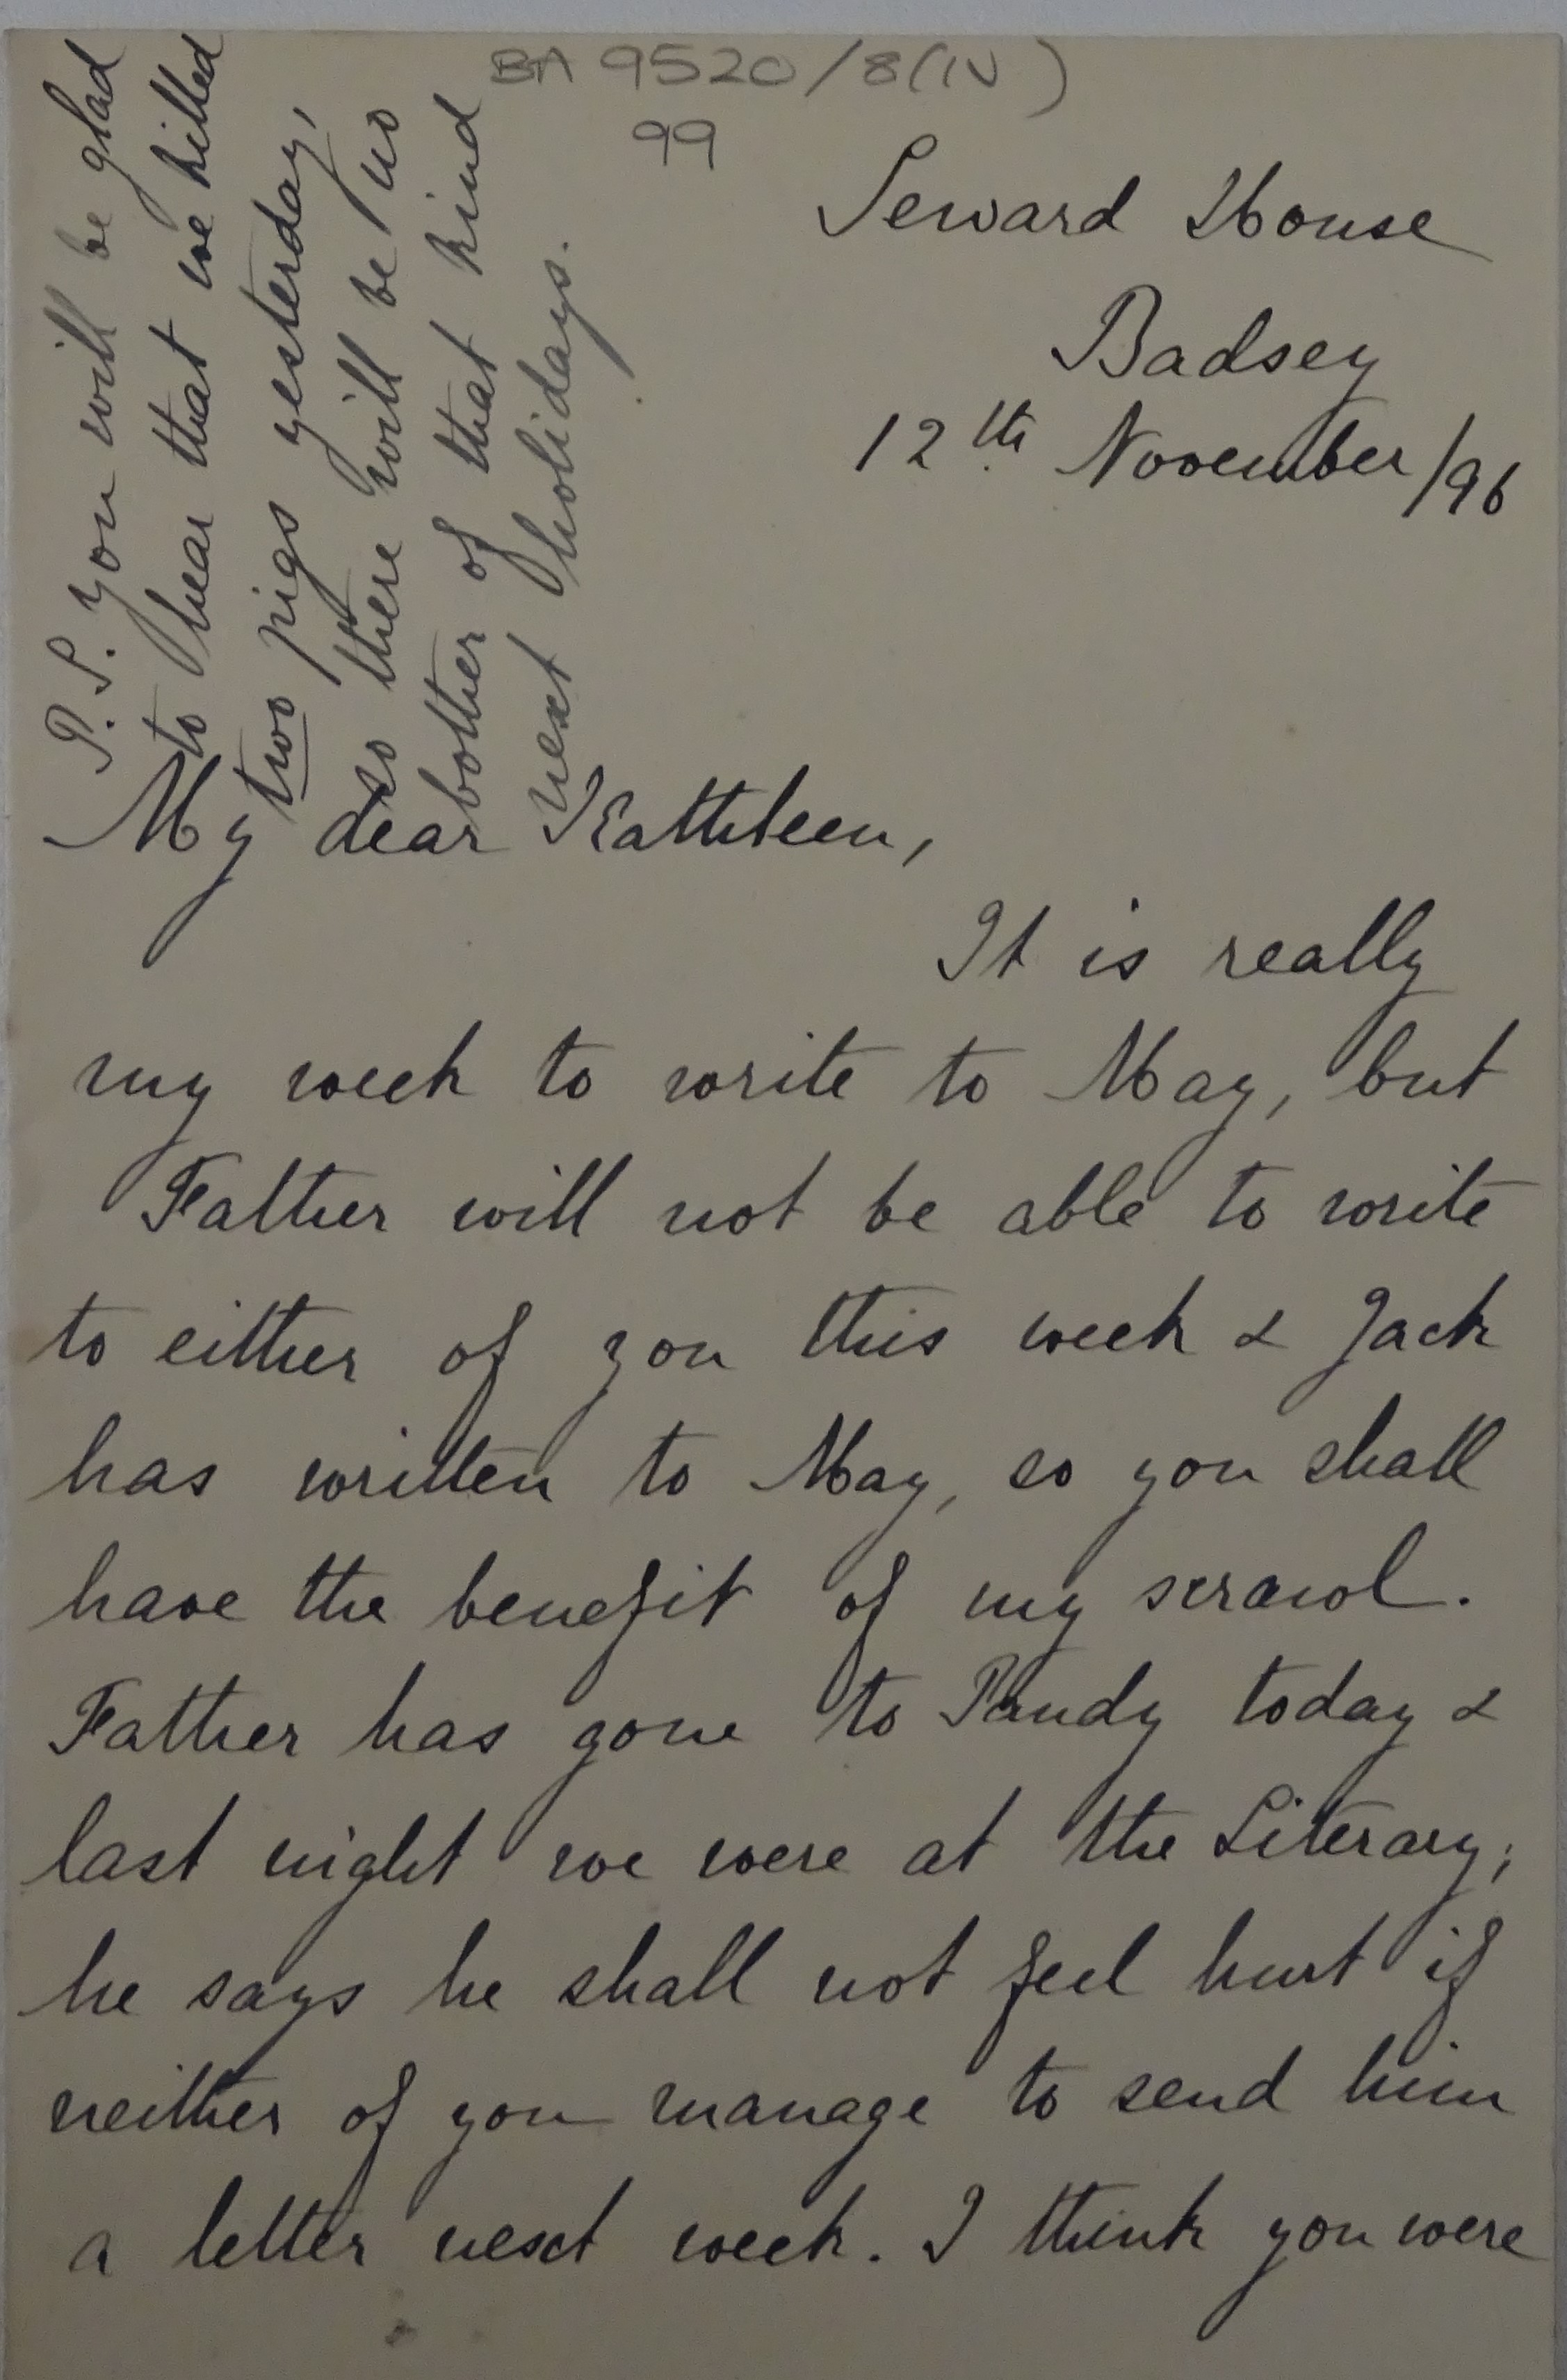 BA 9520/8(IV)
99
Seward House
Badsey
12th November/96
P.S. you will be glad
to hear that we killed
two pigs yesterday,
so there will be no
bother of that kind
next holidays.
My dear Kathleen,
It is really
my week to write to May, but
Father will not be able to write
to either of you this week & Jack
has written to May, so you shall
have the benefit of my scrawl.
Father has gone to Pandy today &
last night we were at the Literary;
he says he shall not feel hurt if
neither of you manage to send him
a letter next week. I think you were